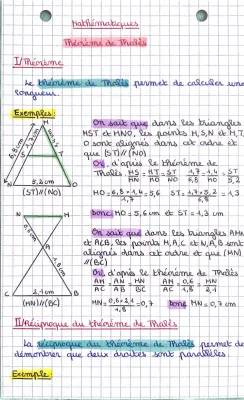 Mathématiques
Théorème de Thalès
I/Théorème
Le théorème de Thalès permet de calculer une
longueur.
Exemples:
On sait que dans les triangles
MST et HNO, les points H, S, N et H, T,
O sont alignés dans cet ordre et
que (ST)//(NO)
Or, d'après le théorème de
Thalès HS/HN = HT/HO = ST/NO 1,7/6,8 = 1,4/HO = ST/5,2
HO = 6,8 × 1,4/1,7 = 5,6 ST = 1,7 × 5,2/6,8 = 1,3
donc HO = 5,6 cm et ST = 1,3 cm
5,2 cm
(ST)//(NO)
On sait que dans les triangles AMN
et ACB, les points M, A, C et N, A, B sont
alignés dans cet ordre et que (MN)
//(BC)
Or, d'après le théorème de Thalès
AM/AC = AN/AB = MN/BC AM/AC = 0,6/1,8 = MN/2,1
MN = 0,6 × 2,1/1,8 = 0,7 donc MN = 0,7 cm
N M
A
0,6cm
1,8cm
C 2,1cm B
(MN)//(BC)
II/Réciproque du théorème de Thalès
La réciproque du théorème de Thalès permet de
démontrer que deux droites sont parallèles
Exemple: